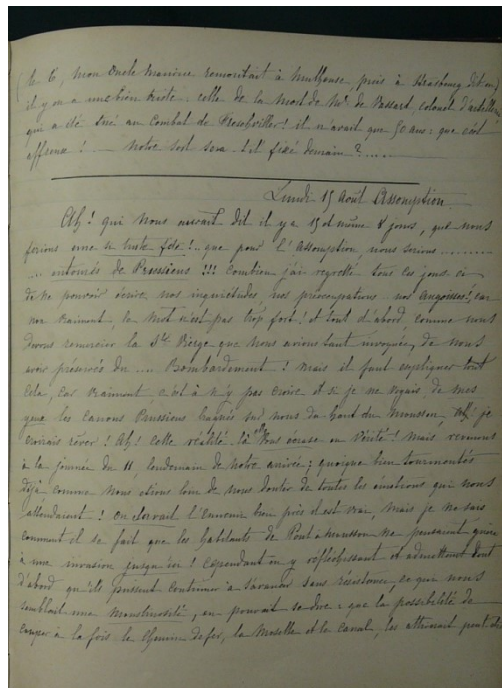 (le 6, mon Oncle Maurice remontait à Mulhouse, puis à Strasbourg dit-on)
il y en a une bien triste : celle de la Mort de Mr de Vassart, colonel d'artillerie
qui a été tué au Combat de Freschviller ! il n'avait que 50 ans : que c'est
affreux ! —— Notre sort sera-t-il fixé demain ? ....
Lundi 15 Août Assomption
Ah ! qui nous aurait dit il y a 15 et même 8 jours, que nous
ferions une si triste fête !.. que pour l'Assomption, nous serions .........
... entourés de Prussiens !!! Combien j'ai regretté tous ces jours-ci
de ne pouvoir écrire nos inquiétudes, nos préoccupations nos angoisses !, car
non vraiment, le mot n'est pas trop fort ! et tout d'abord comme nous
devons remercier la Ste Vierge que nous avions tant invoquée, de nous
avoir préservés du .... Bombardement ! Mais il faut expliquer tout
cela, car vraiment, c'est à n'y pas croire et si je ne voyais de mes
yeux les canons Prussiens braqués sur nous du haut du Mousson, je
croirais rêver ! Ah ! cette réalité-là vous écrase en Vérité ! Mais revenons
à la journée du 11, lendemain de notre arrivée ; quoique bien tourmentés
déjà comme nous étions loin de nous douter de toutes les émotions qui nous
attendaient ! On observait l'Ennemi bien près il est vrai, mais je ne sais
comment il se fait que les habitants de Pont à Mousson ne pensaient guère
à une invasion jusqu'ici ! Cependant en y réfléchissant et admettant tout
d'abord qu'ils pussent continuer à s'avancer sans résistance, ce qui nous
semblait une monstruosité, on pouvait se dire : que la possibilité de
couper à la fois le Chemin de fer, la Moselle et le canal, les attirerait